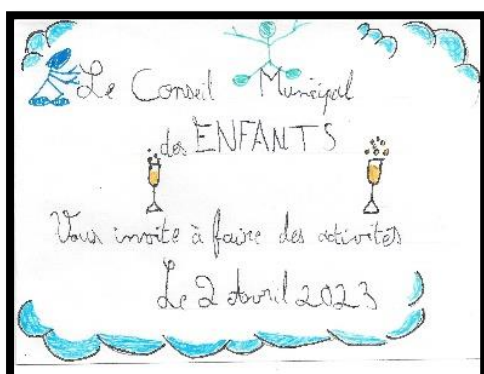 Le Conseil Municipal
des ENFANTS
Vous invite à faire des activités
Le 2 Avril 2023